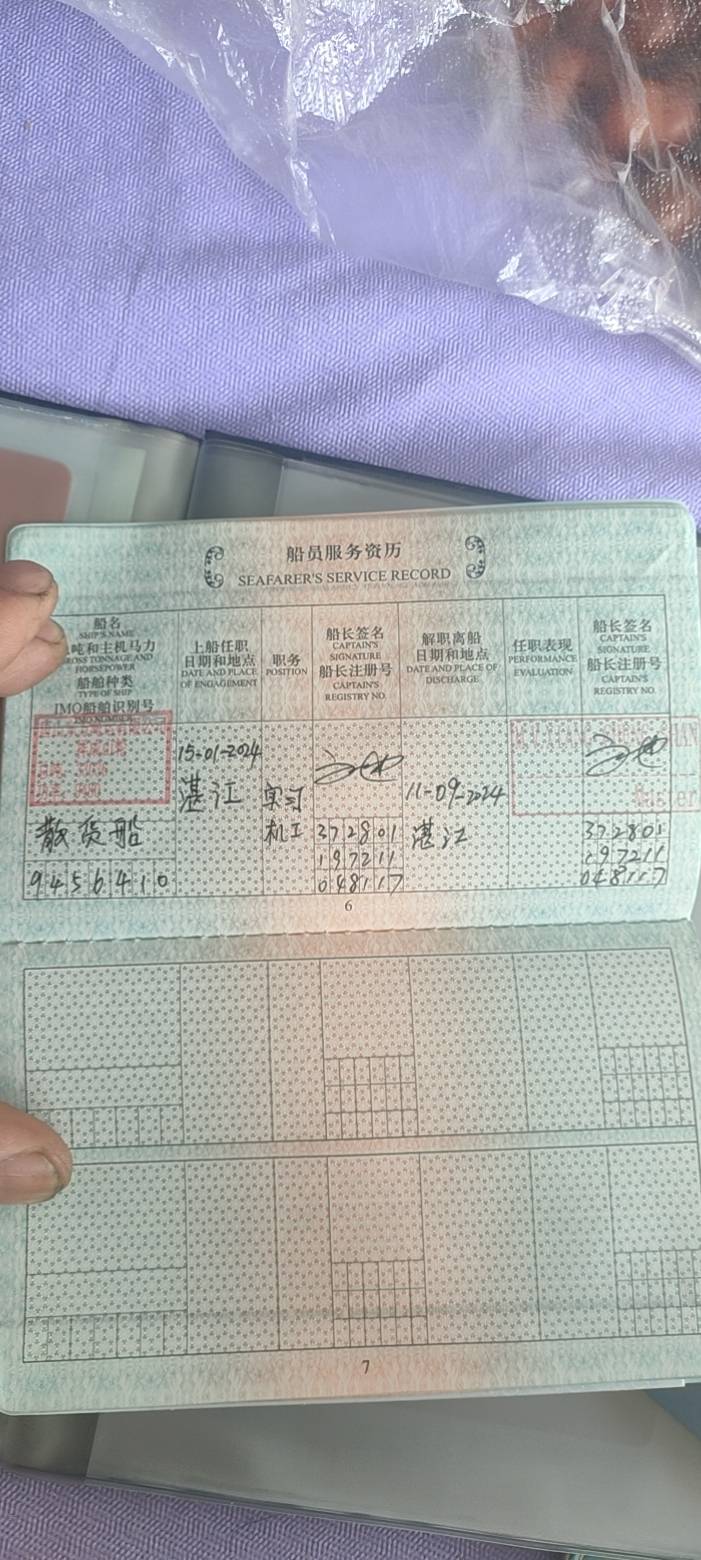 船员服务资历
SEAFARER'S SERVICE RECORD
船名
SHIP'S NAME
吨和主机马力
GROSS TONNAGE AND
HORSEPOWER
船舶种类
TYPE OF SHIP
IMO船舶识别号
IMO NUMBER
上船任职
日期和地点
DATE AND PLACE
OF ENGAGEMENT
职务
POSITION
船长签名
CAPTAIN'S
SIGNATURE
船长注册号
CAPTAIN'S
REGISTRY NO.
解职离船
日期和地点
DATE AND PLACE OF
DISCHARGE
任职表现
PERFORMANCE
EVALUATION
船长签名
CAPTAIN'S
SIGNATURE
船长注册号
CAPTAIN'S
REGISTRY NO.
散货船
9456410
15-01-2024
湛江
实习
机工
372801
197211
048117
11-09-2024
湛江
Master
372801
197211
048117
6
7